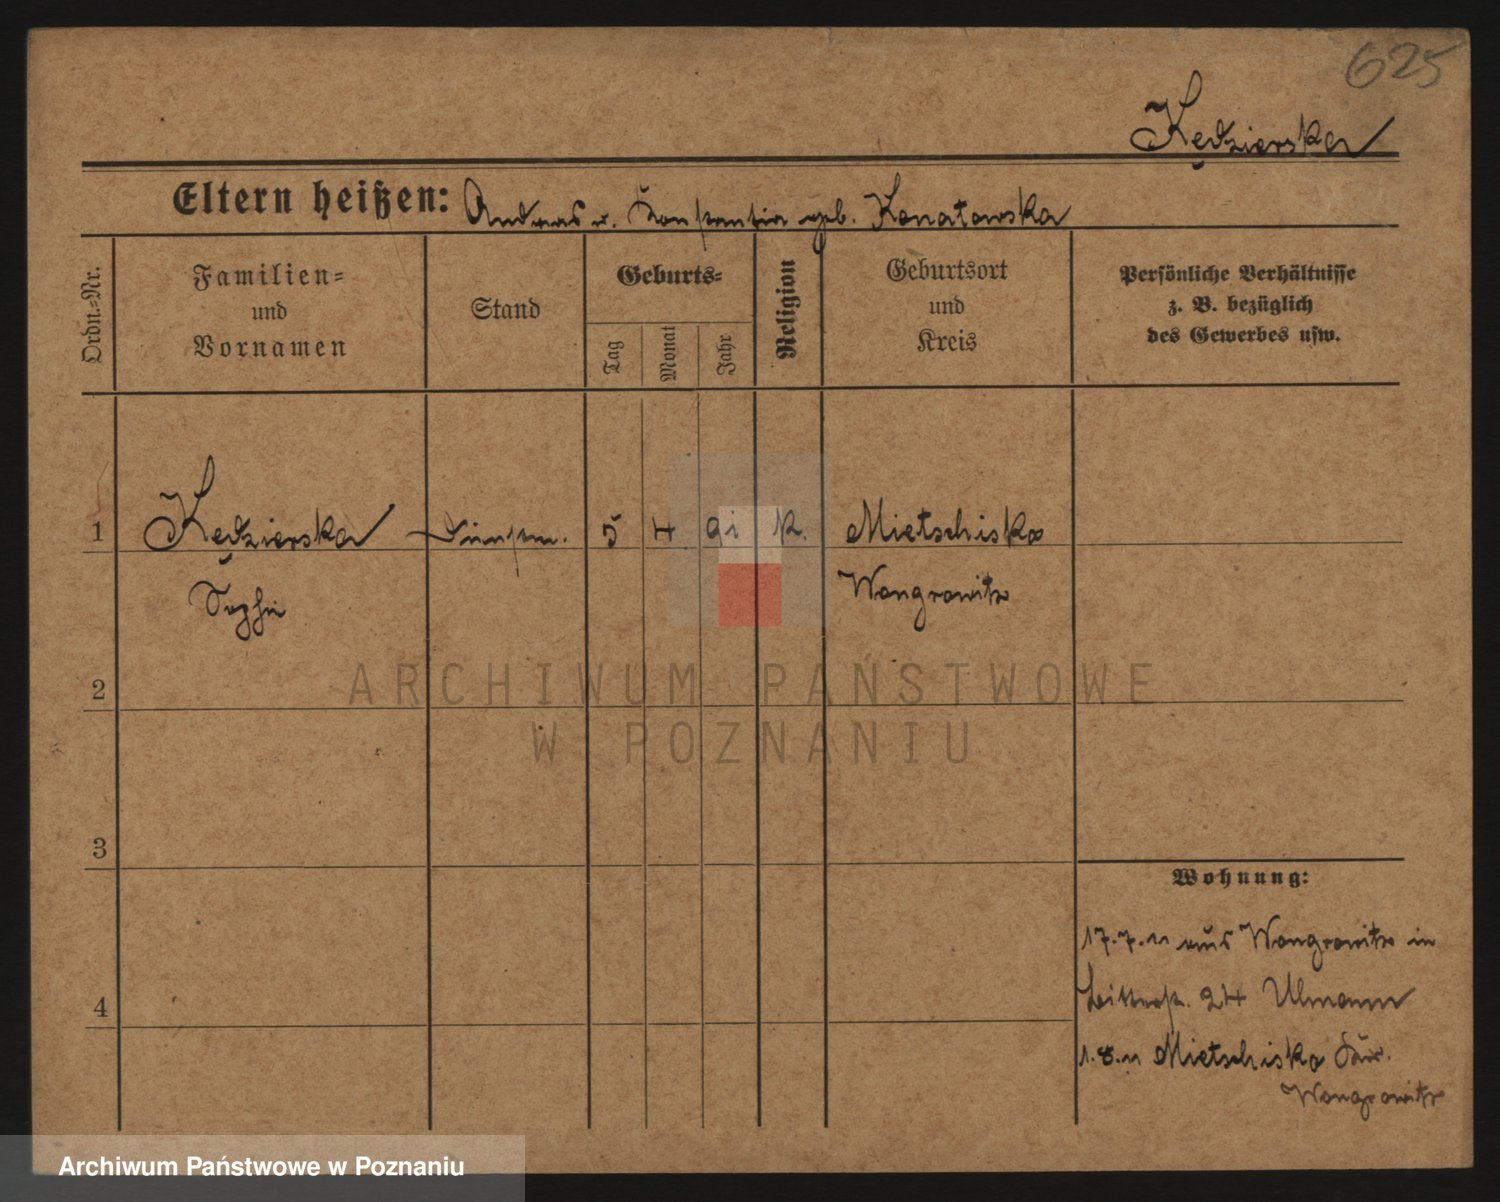 625
Kędzierska
Eltern heißen: Andreas u. Konstantia geb. Konatowska
Ordn.=Nr.
Familien=
und
Vornamen
Stand
Geburts=
Tag
Monat
Jahr
Religion
Geburtsort
und
Kreis
Persönliche Verhältnisse
z. B. bezüglich
des Gewerbes usw.
1 Kędzierska 5 4 91 k. Mietschisko
Sophie Wongrowitz
2
ARCHIWUM PAŃSTWOWE
W POZNANIU
3
Wohnung:
17.7.11 aus Wongrowitz in
4
24 Ulmann
1.8.11 Mietschisko
Wongrowitz
Archiwum Państwowe w Poznaniu